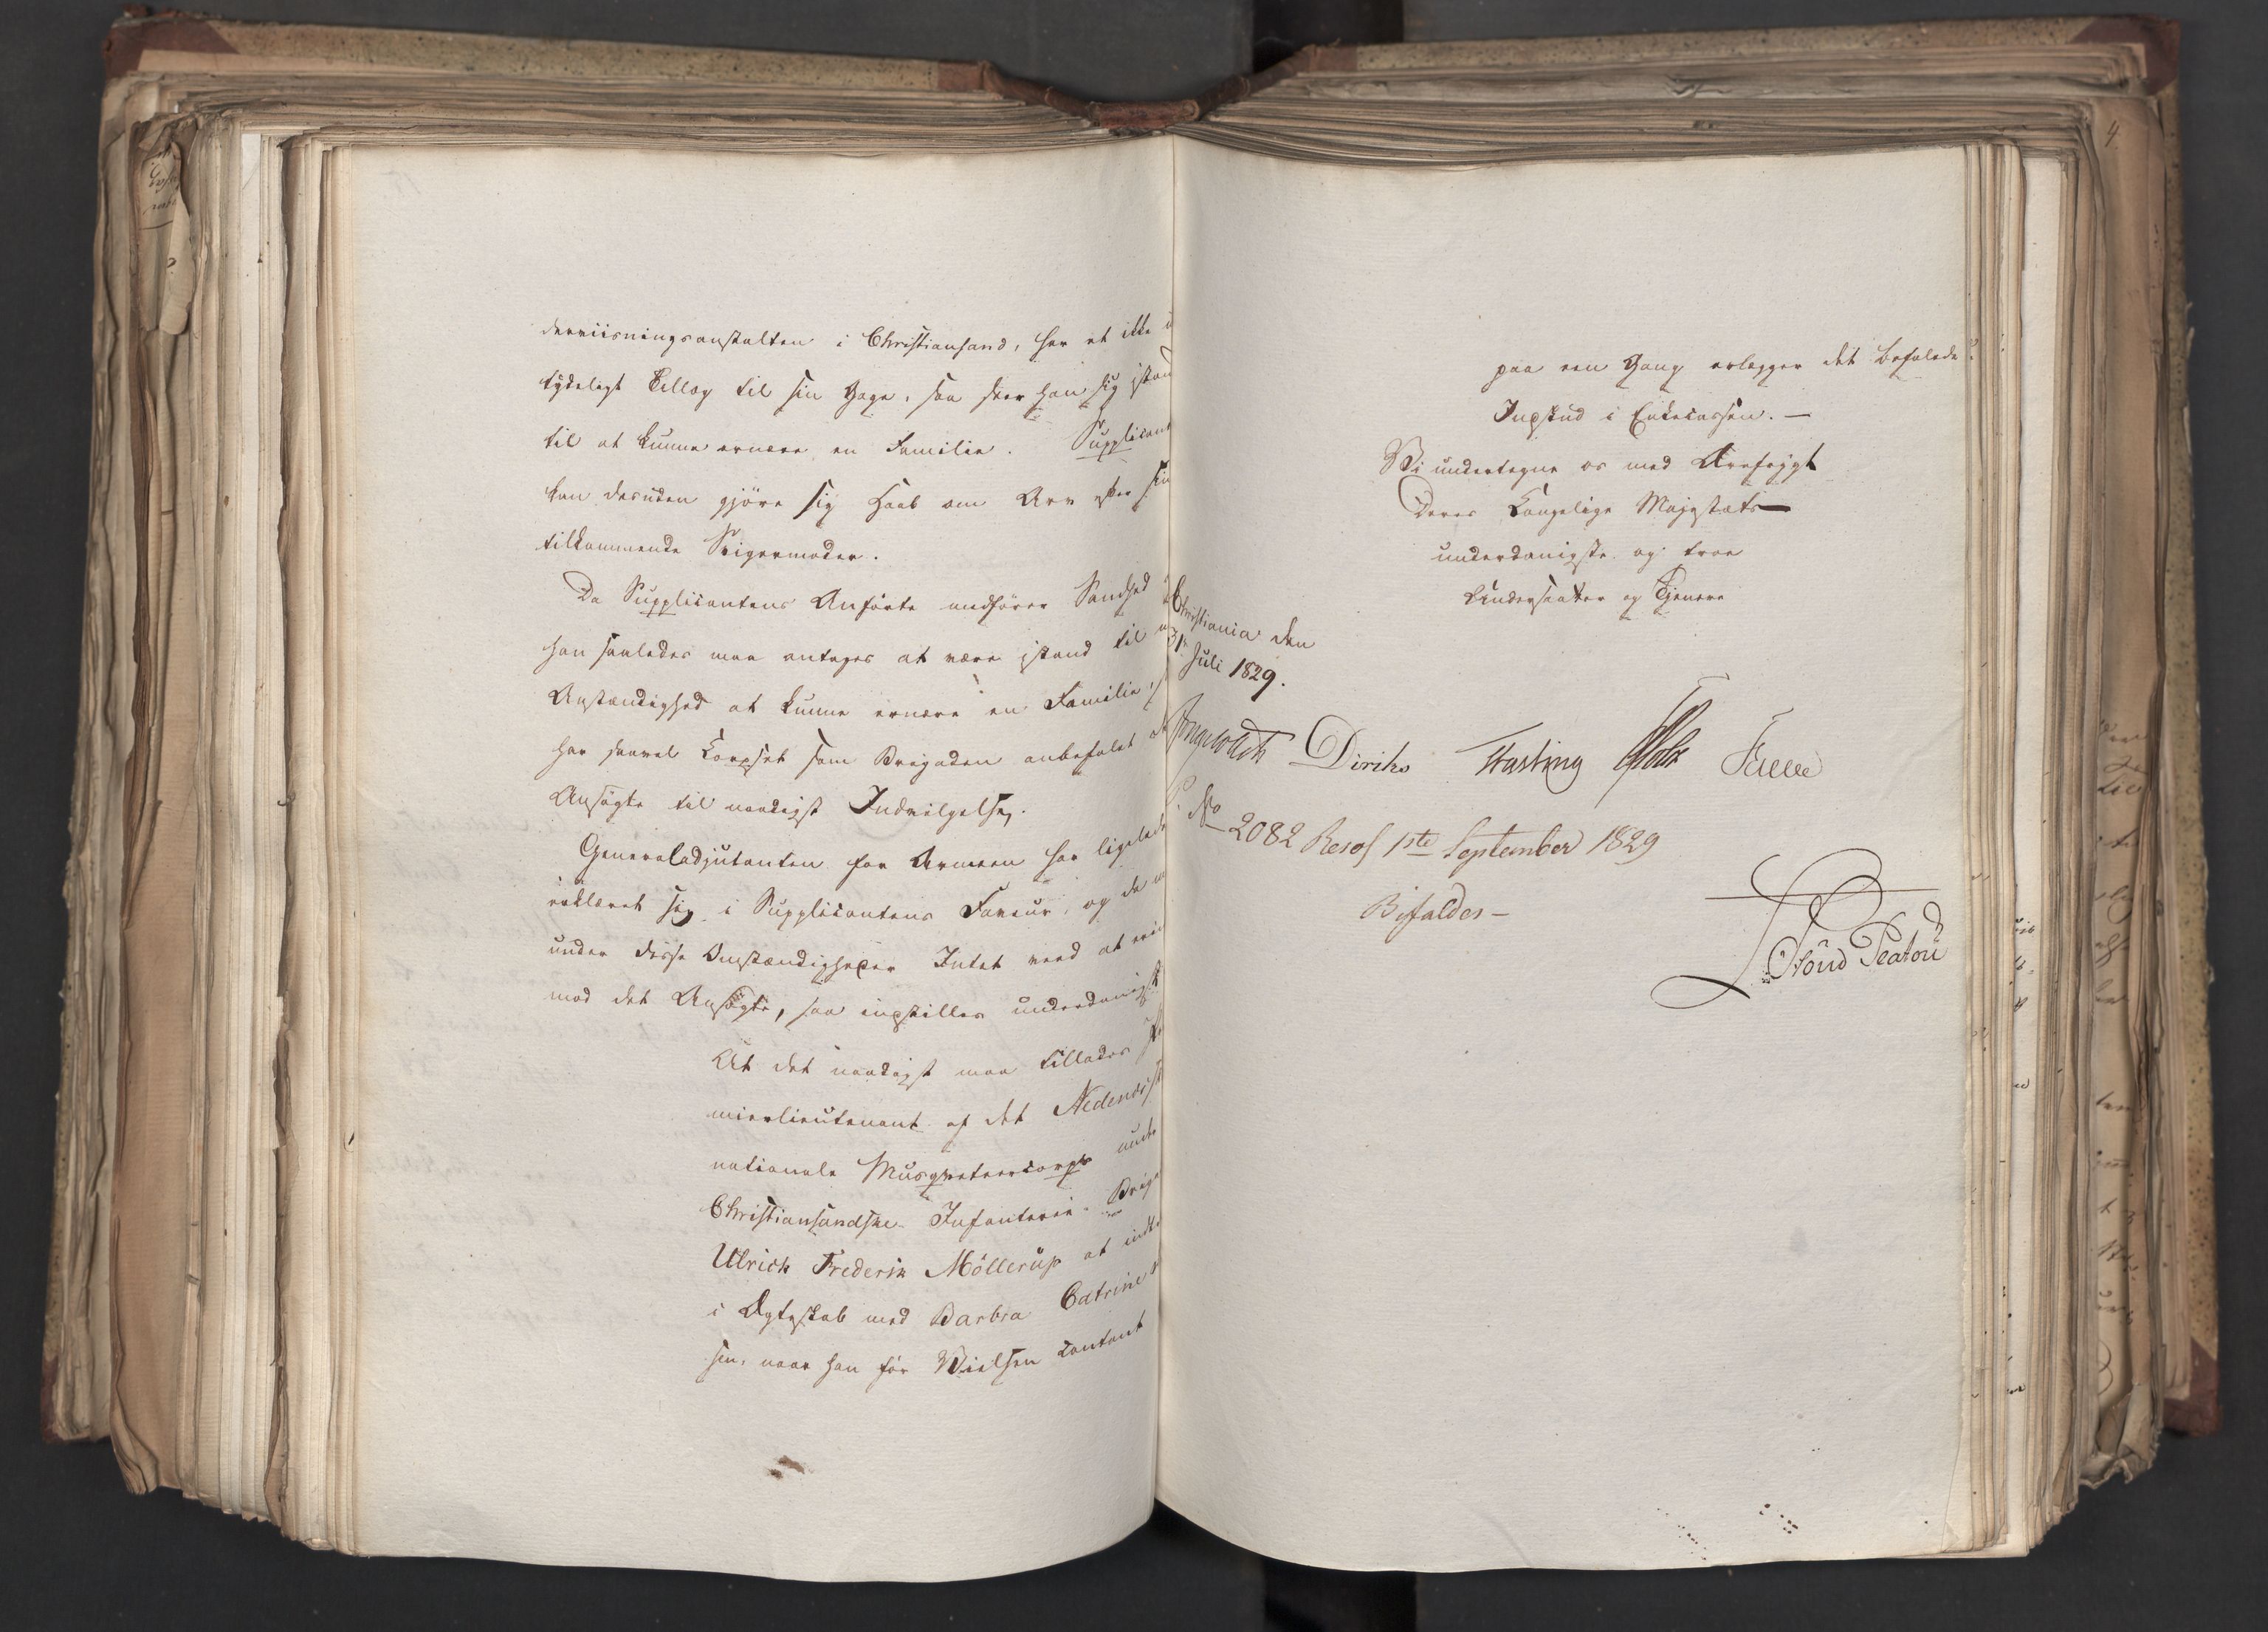 derviisningsanstalten i Christiansand, har et ikke u
tydeligt Tillæg til sin Gage, saa seer han sig istan
til at kunne ernære en Familie. Supplicant
kan desuden gjöre sig Haab om Arv efter sin
tilkommende Svigermoder.
Da Supplicantens Anförte medförer Sandhed
han saaledes maa antages at være istand til m
Anstændighed at kunne ernære en Familie,
har saavel Corpset som Brigaden anbefalet
Ansögte til naadigst Indvilgelse.
Generaladjutanten for Armeen har ligelede
erklæret sig i Supplicantens Faveur, og da
under disse Omstændigheder Intet veed at eri
mod det Ansögte, saa indstilles underdanigst
At det naadigst maa tillades
mierlieutenant af det Nedenæsk
nationale Musqveteercorps unde
Christiansandske Infanterie-Briga
Ulrich Frederik Möllerup at indtr
i Ægteskab med Barbra Catrine
sen, naar han for Nielsen contant
paa een Gang erlægger det befalede
Indskud i Enkecassen. —
Vi undertegne os med Ærefrygt
Deres Kongelige Majestæts
underdanigste og troe
Undersaatter og Tjenere
Christiania den
31 Juli 1829.
Diriks Fasting Holst
No 2082 Resol 1ste September 1829
Bifaldes —